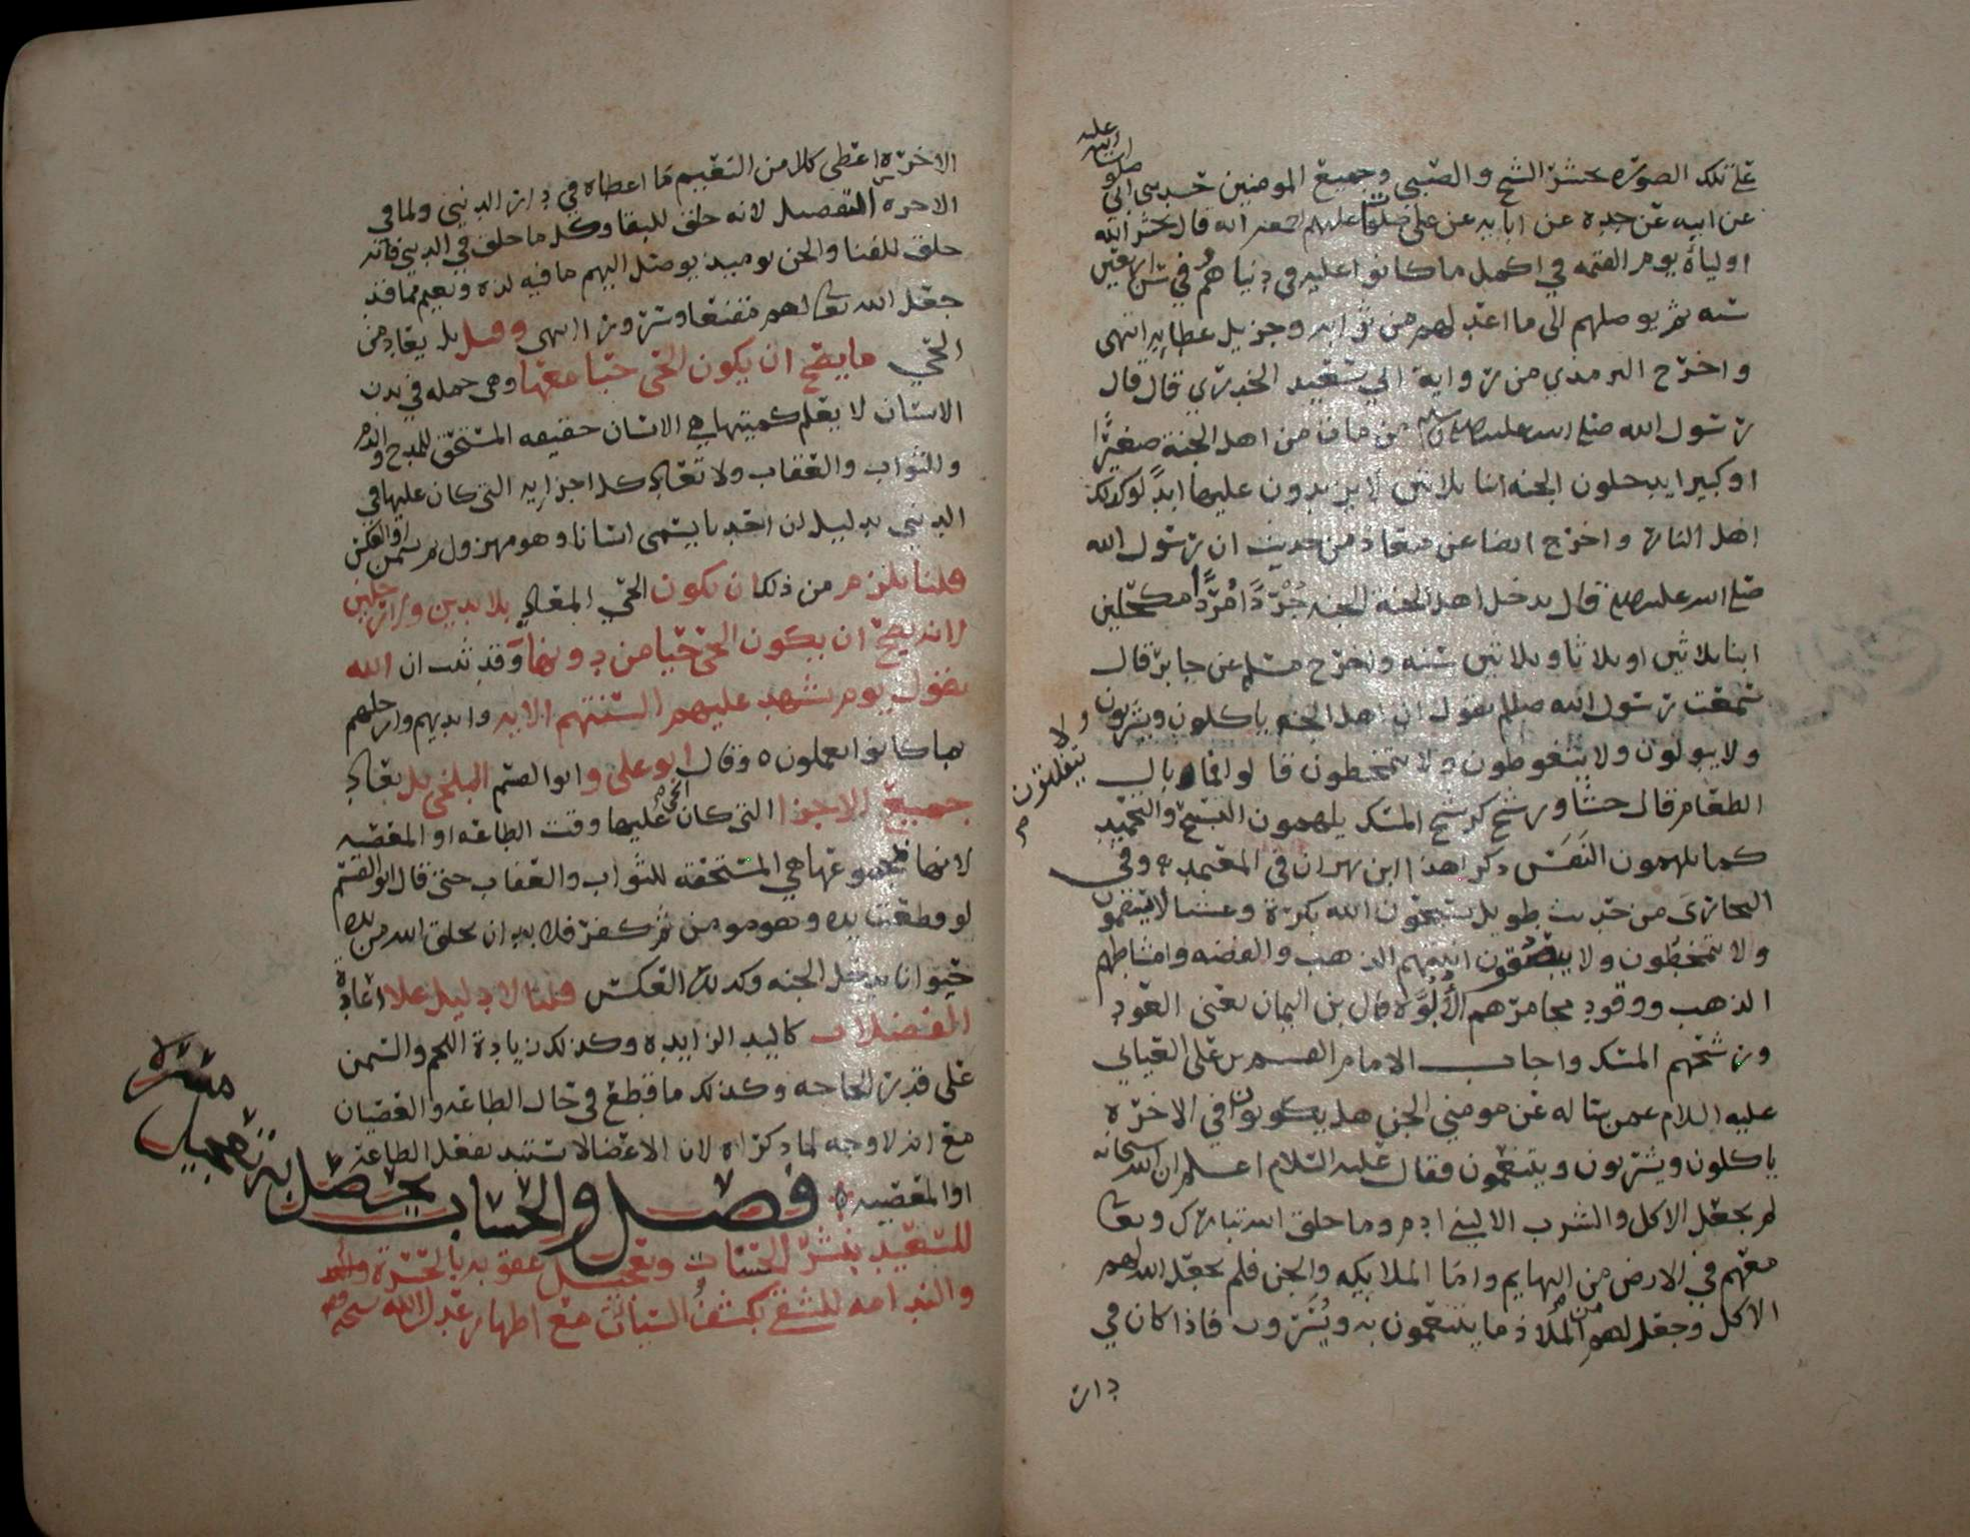 على تلك الصوره يحشر الشيخ والصبي وجميع المومنين حدثني ابي
صلوات الله عليه
عن ابيه عن جده عن ابايه عن علي صلوات الله عليهم انه قال يحشر الله
اولياه يوم القيمه في اكمل ما كانوا عليه في دنياهم في سن اربعين
سنه ثم يوصلهم الى ما اعد لهم من ثوابه وجزيل عطايه انتهى
واخرج الترمذي من رواية ابي سعيد الخدري قال قال
رسول الله صلى الله عليه وسلم من مات من اهل الجنة صغيرا
او كبيرا يدخلون الجنه ابنا ثلاثين لا يزيدون عليها ابدا وكذلك
اهل النار واخرج ايضا عن معاذ من حديث ان رسول الله
صلى الله عليه وسلم قال يدخل اهل الجنة الجنه جردا مردا مكحلين
ابنا ثلاثين او ثلاثا وثلاثين سنه واخرج مسلم عن جابر قال
سمعت رسول الله صلعم يقول ان اهل الجنه ياكلون ويشربون
ولا يتفلون
ولا يبولون ولا يتغوطون ولا يتمخطون قالوا فما بال
الطعام قال جشا ورشح كرشح المسك يلهمون التسبيح والتحميد
كما يلهمون النفس ذكر هذا ابن بهران في المعتمد وفي
البخاري من حديث طويل يسبحون الله بكرة وعشيا لا يسقمون
ولا يتمخطون ولا يبصقون انيتهم الذهب والفضه وامشاطهم
الذهب ووقود مجامرهم الألوة قال بن اليمان يعني العود
ورشحهم المسك واجاب الامام القسم بن علي العياني
عليه السلام عمن ساله عن مومني الجن هل يكونون في الاخرة
ياكلون ويشربون ويتنعمون فقال عليه السلام اعلم ان الله سبحانه
لم يجعل الاكل والشرب الا لبني ادم وما خلق الله تبارك وتعا
معهم في الارض من البهايم واما الملايكه والجن فلم يجعل الله لهم
الاكل وجعل لهم من الملاذ ما يتنعمون به ويسرون فاذا كان في
دار
الاخرة اعطى كلا من النعيم ما اعطاه في دار الدنيى ولما في
الاخره التفصيل لانه خلق للبقا وكل ما خلق في الدنيى فانه
خلق للفنا والجن يوميذ يوصل اليهم ما فيه لذه ونعيم مما قد
جعل الله تعا لهم مقنعا وسرورا انتهى وقيل بل يعاد من
الحي ما يصح ان يكون الحي حيا معها وهي جمله في بدن
الانسان لا يعلم كميتها هي الانسان حقيقه المستحق للمدح والذم
وللثواب والعقاب ولا تعاد كل اجزايه التي كان عليها في
الدنيى بدليل ان احدنا يسمى انسانا وهو مهزول ثم يسمن او العكس
قلنا يلزم من ذلك ان يكون الحي المعاد بلا يدين ورجلين
لانه يصح ان يكون الحي حيا من دونها وقد ثبت ان الله
يقول يوم تشهد عليهم السنتهم الايه وايديهم وارجلهم
بما كانوا يعملون وقال ابو علي وابو القسم البلخي بل يعاد
جميع الاجزا التي كان الحي عليها وقت الطاعه او المعصيه
لانها مجموعها هي المستحقه للثواب والعقاب حتى قال ابو القسم
لو قطعت يده وهو مومن ثم كفر فلا بد ان يخلق الله من يده
حيوانا يدخل الجنه وكذلك العكس قلنا لا دليل على اعادة
الفضلات كاليد الزايده وكذلك زيادة اللحم والسمن
على قدر الحاجه وكذلك ما قطع في حال الطاعه والعصيان
مع انه لا وجه لما ذكراه لان الاعضا لا تستبد بفعل الطاعة
او المعصيه
فصل والحساب يحصل به تعجيل مسرة
للسعيد بنشر الحسنات وتعجيل عقوبه بالحسرة
والندامه للشقي بكشف السيات مع اظهار عدل الله سبحانه